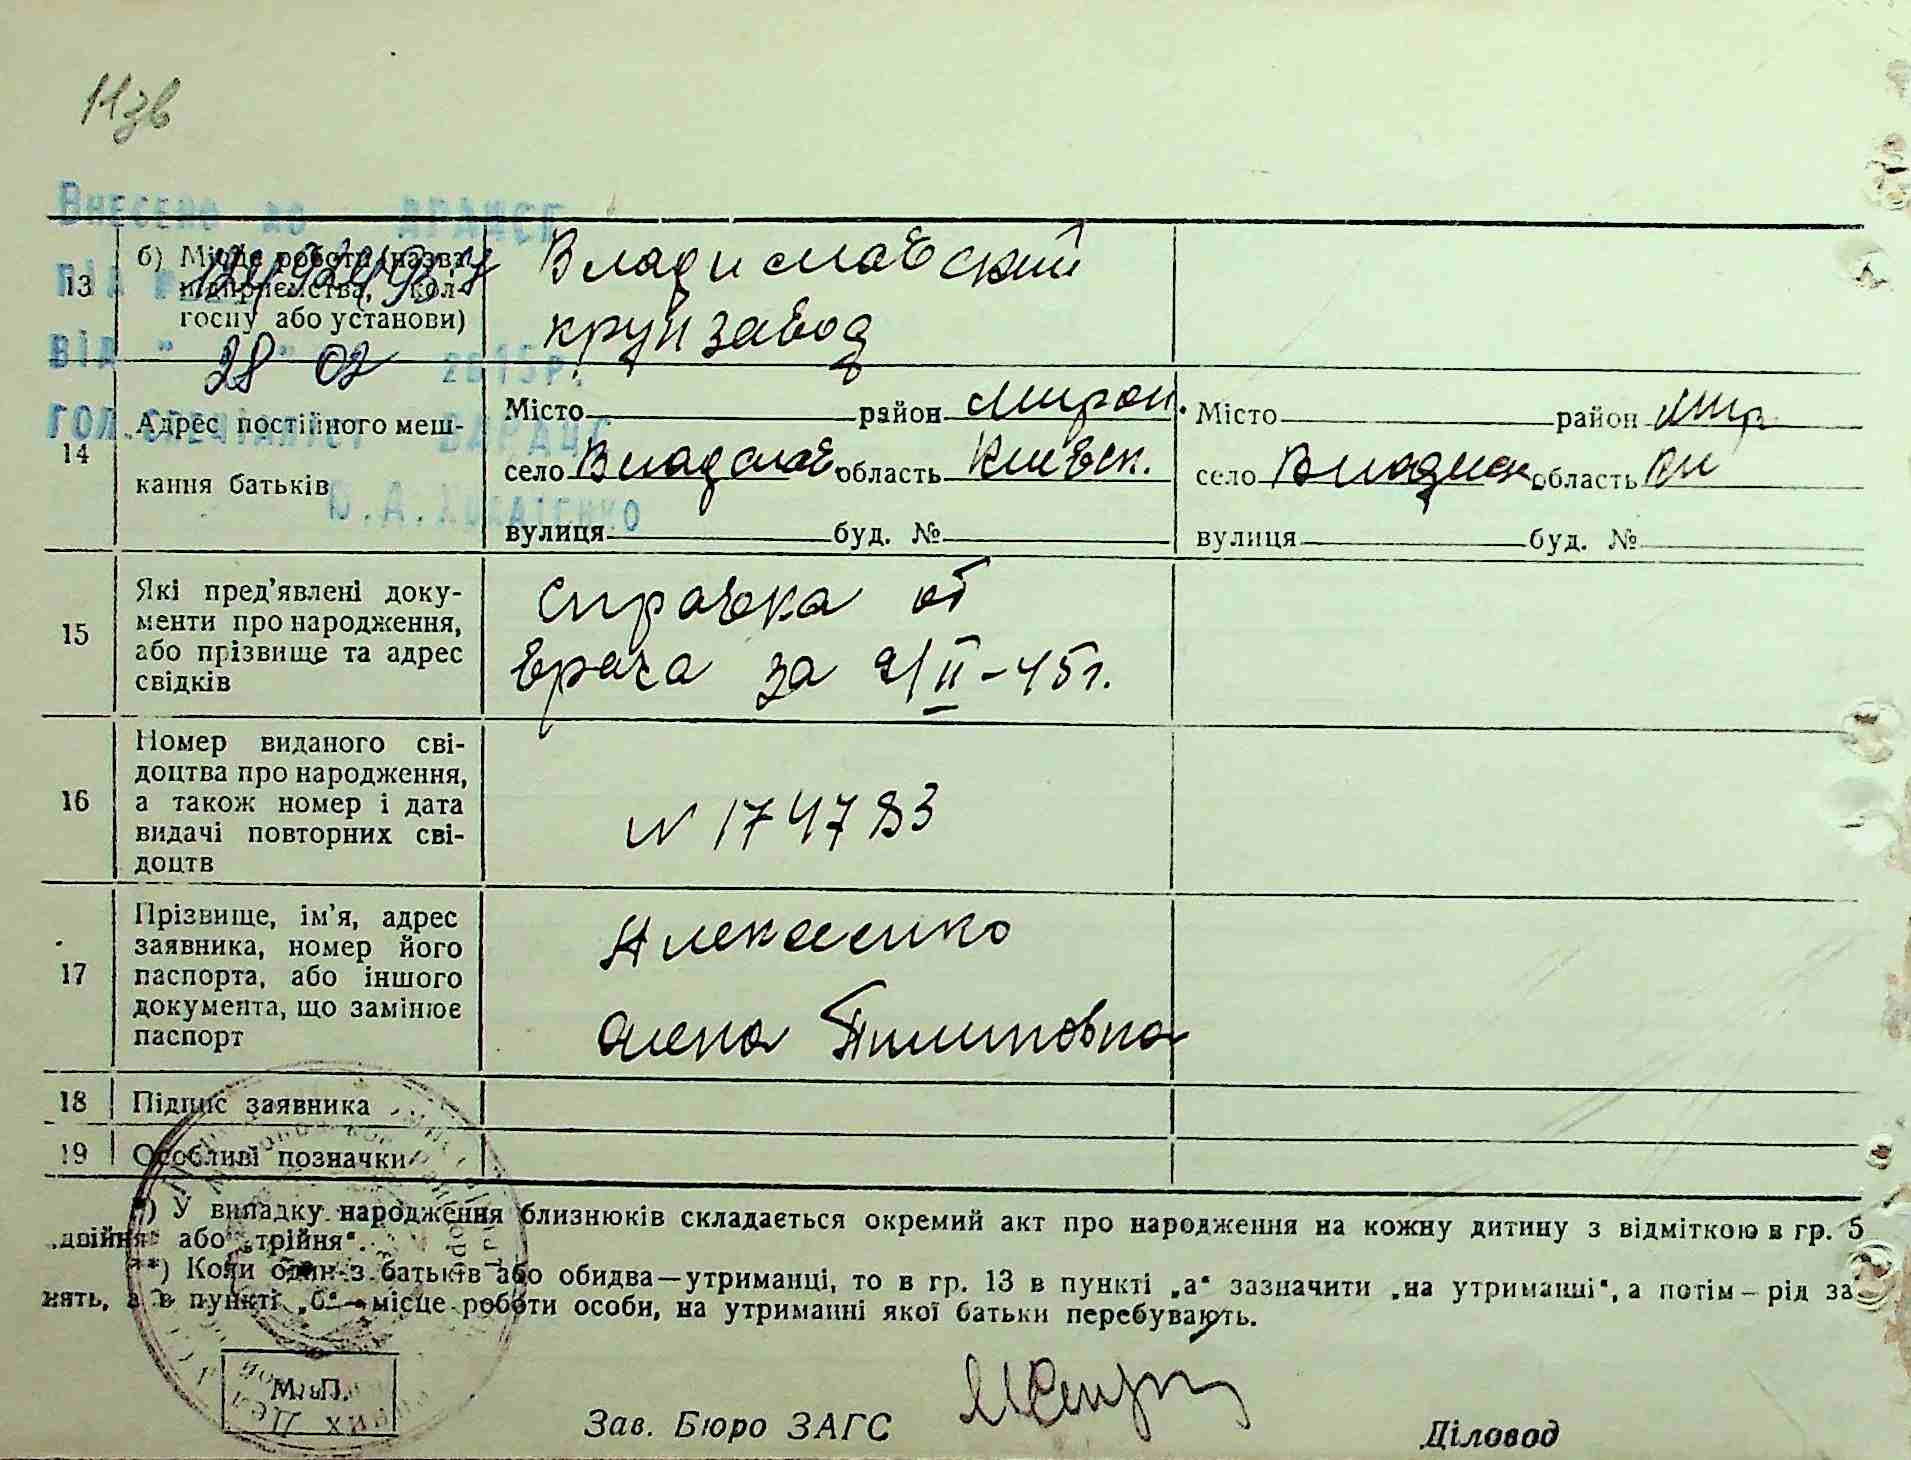 11зв
Внесено до ДРАЦСГ
13
б) Місце роботи (назва
підприємства, кол-
госпу або установи)
Владиславский
крупзавод
від " 28 " 02 2015р.
гол. спеціаліст ВДРАЦС
14
Адрес постійного меш-
кання батьків
Місто район Мирон.
село Владслав. область Киевск.
вулиця буд. №
Місто район Мир
село Владисл. область Ки
вулиця буд. №
15
Які пред'явлені доку-
менти про народження,
або прізвище та адрес
свідків
Справка от
врача за 21/II-45г.
16
Номер виданого сві-
доцтва про народження,
а також номер і дата
видачі повторних сві-
доцтв
N 174783
17
Прізвище, ім'я, адрес
заявника, номер його
паспорта, або іншого
документа, що замінює
паспорт
Алексеенко
Олена Пилиповна
18
Підпис заявника
19
Особливі позначки
*) У випадку народження близнюків складається окремий акт про народження на кожну дитину з відміткою в гр. 5
„двійня" або „трійня".
**) Коли один з батьків або обидва—утриманці, то в гр. 13 в пункті „а" зазначити „на утриманні", а потім—рід за-
нять, а в пункті „б"—місце роботи особи, на утриманні якої батьки перебувають.
М. П.
Зав. Бюро ЗАГС
Діловод